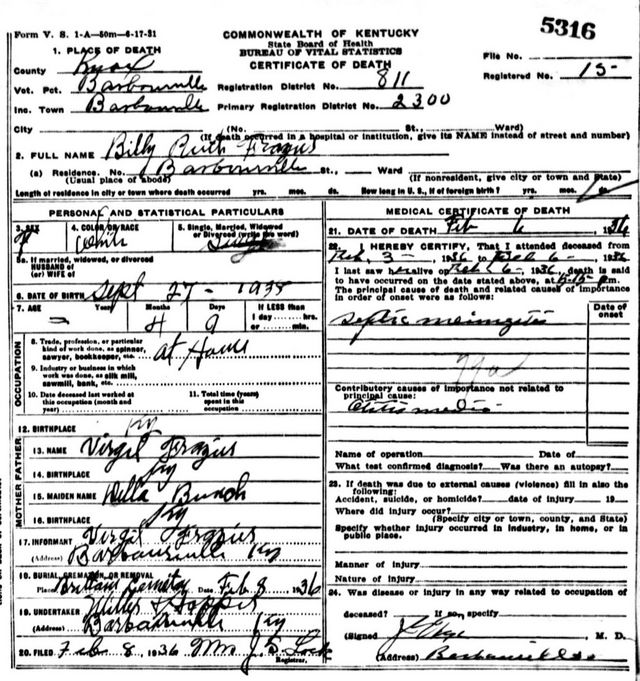 Form V. S. 1-A—50m—6-17-31
5316
COMMONWEALTH OF KENTUCKY
State Board of Health
BUREAU OF VITAL STATISTICS
CERTIFICATE OF DEATH
1. PLACE OF DEATH
County Knox
Vot. Pct. Barbourville
Inc. Town Barbourville
Registration District No. 811
Primary Registration District No. 2300
File No.
Registered No. 15-
City (No. St., Ward)
(If death occurred in a hospital or institution, give its NAME instead of street and number)
2. FULL NAME Billy Ruth
(a) Residence. No. Barbourville St., Ward
(Usual place of abode) (If nonresident, give city or town and State)
Length of residence in city or town where death occurred yrs. mos. ds. How long in U. S., if of foreign birth? yrs. mos. ds.
PERSONAL AND STATISTICAL PARTICULARS
3. SEX
4. COLOR OR RACE
White
5. Single, Married, Widowed
or Divorced (write the word)
Single
5a. If married, widowed, or divorced
HUSBAND of
(or) WIFE of
6. DATE OF BIRTH Sept 27-
7. AGE Years Months Days If LESS than
1 day hrs.
or min.
4 9
OCCUPATION
8. Trade, profession, or particular
kind of work done, as spinner,
sawyer, bookkeeper, etc. at Home
9. Industry or business in which
work was done, as silk mill,
sawmill, bank, etc.
10. Date deceased last worked at
this occupation (month and
year)
11. Total time (years)
spent in this
occupation
12. BIRTHPLACE Ky
FATHER
13. NAME Virgil
14. BIRTHPLACE Ky
MOTHER
15. MAIDEN NAME Della Bunch
16. BIRTHPLACE Ky
17. INFORMANT Virgil
(Address) Barbourville Ky
18. BURIAL, CREMATION OR REMOVAL
Place Cemetery Date Feb 8 1936
19. UNDERTAKER
(Address) Barbourville Ky
20. FILED Feb 8, 1936 Mrs J. S. Lock
Registrar.
MEDICAL CERTIFICATE OF DEATH
21. DATE OF DEATH Feb 6, 1936
22. I HEREBY CERTIFY, That I attended deceased from
Feb. 3- 1936 to Feb 6- 1936
I last saw her alive on Feb 6- 1936, death is said
to have occurred on the date stated above, at m.
The principal cause of death and related causes of importance
in order of onset were as follows:
Date of
onset
Septic meningitis
Contributory causes of importance not related to
principal cause:
Otitis media
Name of operation Date of
What test confirmed diagnosis? Was there an autopsy?
23. If death was due to external causes (violence) fill in also the
following:
Accident, suicide, or homicide? date of injury 19
Where did injury occur?
(Specify city or town, county, and State)
Specify whether injury occurred in industry, in home, or in
public place.
Manner of injury
Nature of injury
24. Was disease or injury in any way related to occupation of
deceased? If so, specify
(Signed) M. D.
(Address)